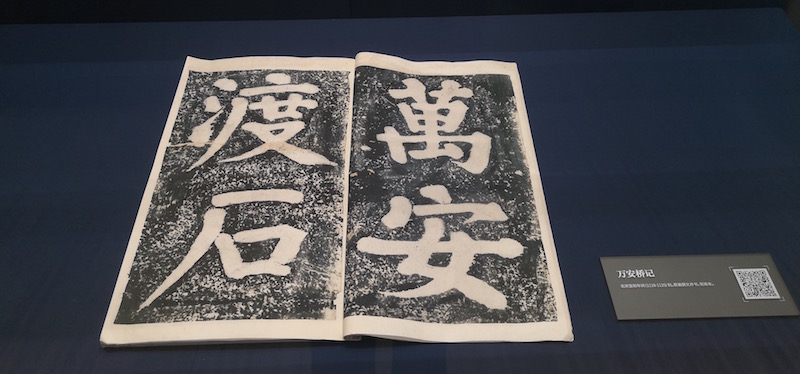 萬安
渡石
万安桥记